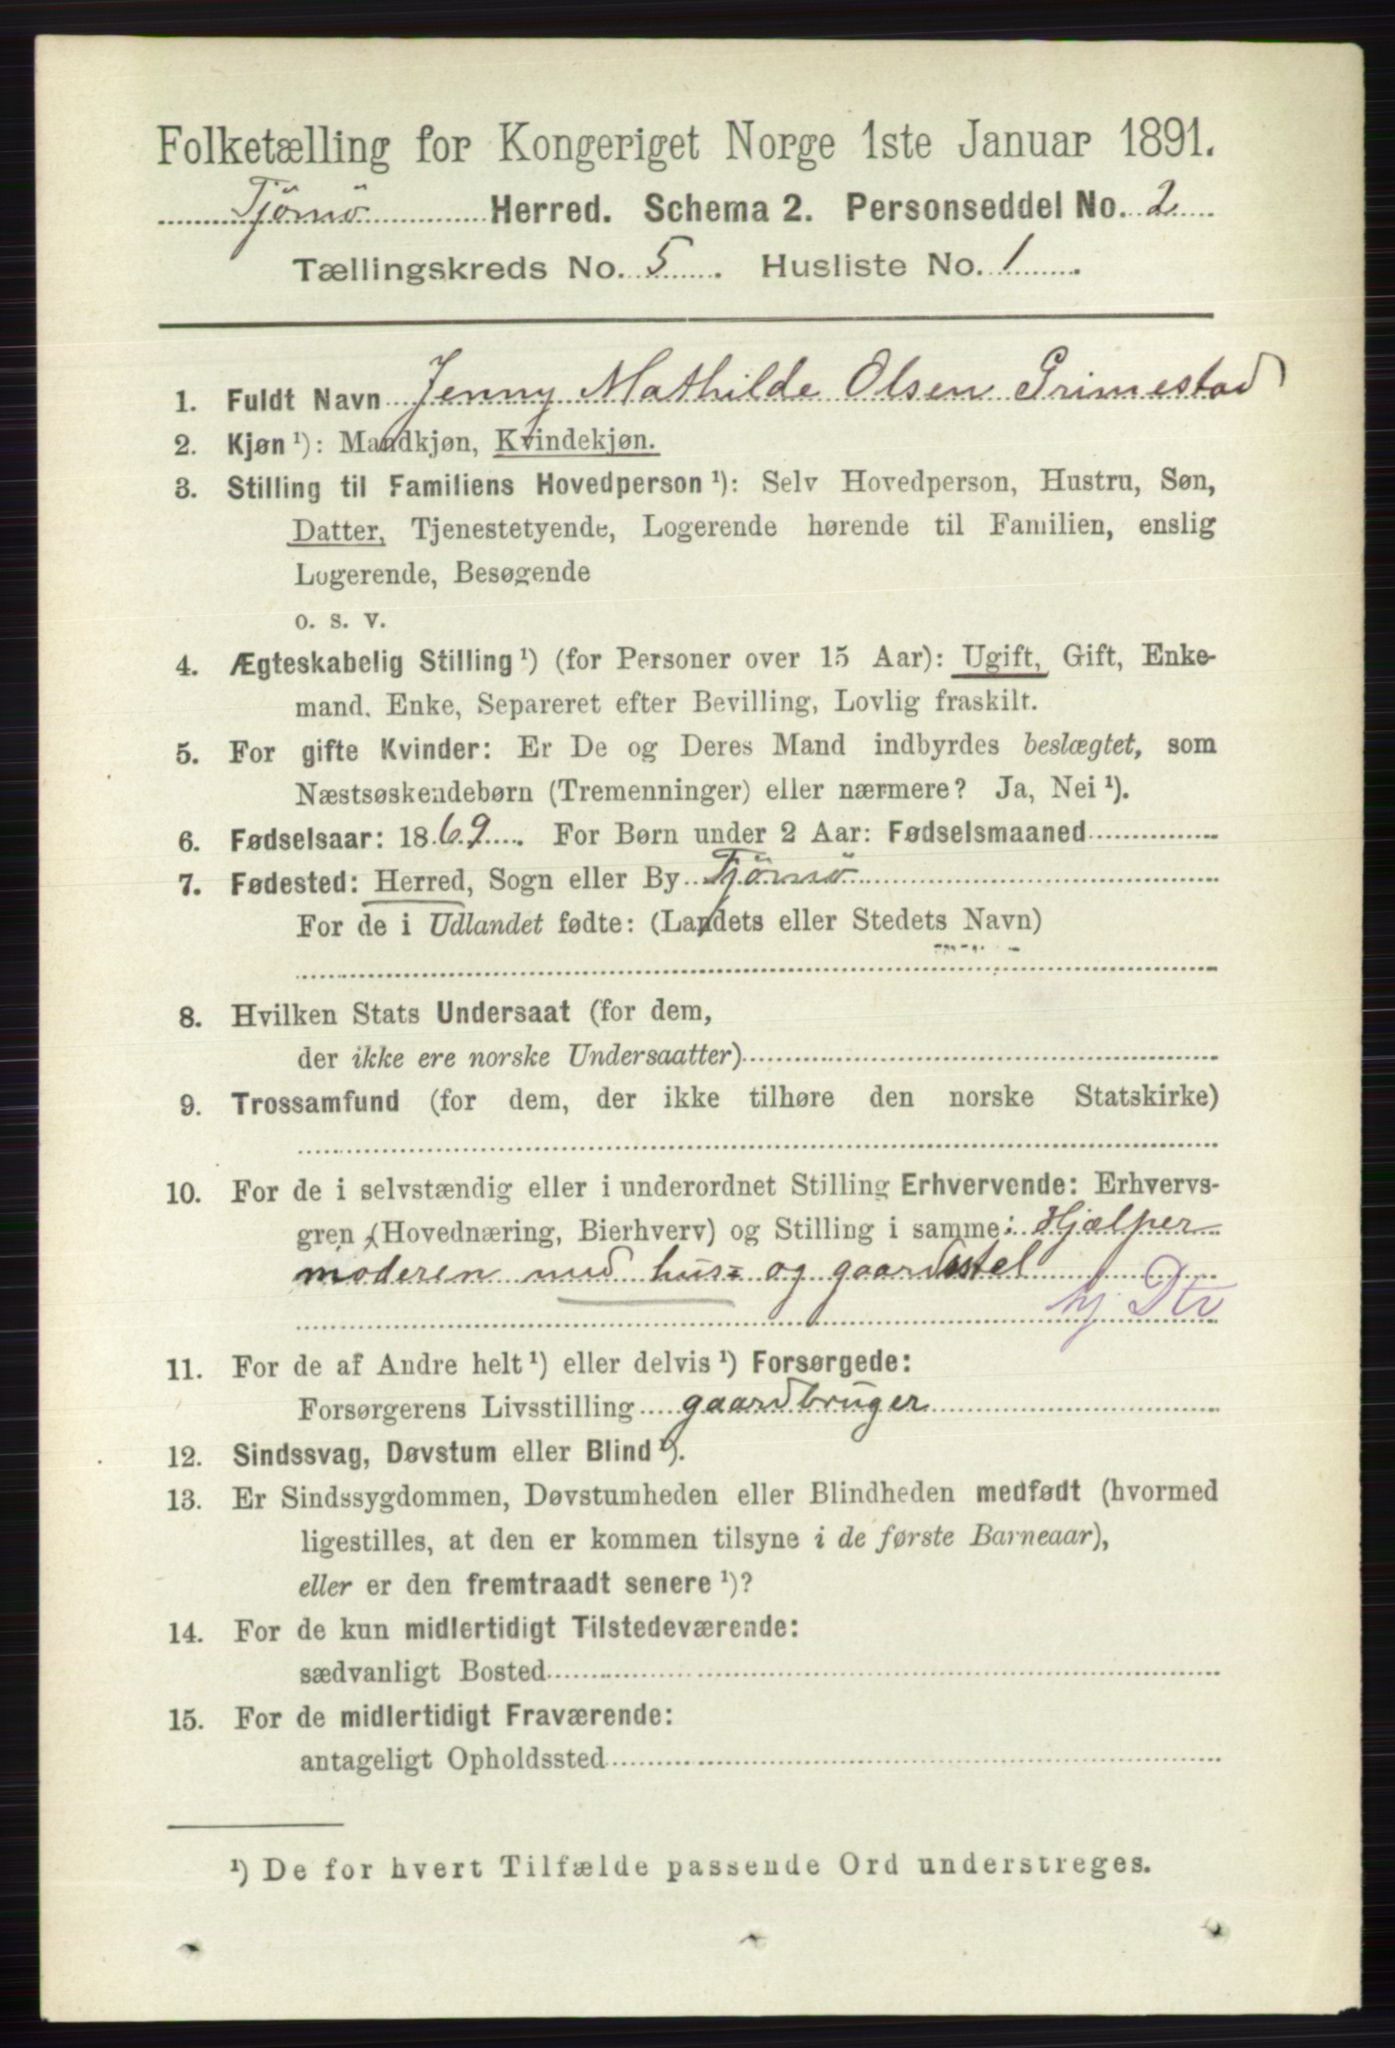 Folketælling for Kongeriget Norge 1ste Januar 1891.
Tjömö Herred. Schema 2. Personseddel No. 2
Tællingskreds No. 5. Husliste No. 1.
1. Fuldt Navn Jenny Mathilde Olsen Grimestad
2. Kjøn ¹): Mandkjøn, Kvindekjøn.
3. Stilling til Familiens Hovedperson ¹): Selv Hovedperson, Hustru, Søn,
Datter, Tjenestetyende, Logerende hørende til Familien, enslig
Logerende, Besøgende
o. s. v.
4. Ægteskabelig Stilling ¹) (for Personer over 15 Aar): Ugift, Gift, Enke-
mand, Enke, Separeret efter Bevilling, Lovlig fraskilt.
5. For gifte Kvinder: Er De og Deres Mand indbyrdes beslægtet, som
Næstsøskendebørn (Tremenninger) eller nærmere? Ja, Nei ¹).
6. Fødselsaar: 1869. For Børn under 2 Aar: Fødselsmaaned
7. Fødested: Herred, Sogn eller By Tjömö
For de i Udlandet fødte: (Landets eller Stedets Navn)
8. Hvilken Stats Undersaat (for dem,
der ikke ere norske Undersaatter)
9. Trossamfund (for dem, der ikke tilhøre den norske Statskirke)
10. For de i selvstændig eller i underordnet Stilling Erhvervende: Erhvervs-
gren (Hovednæring, Bierhverv) og Stilling i samme: Hjælper
moderen med hus= og gaardsstel
hj Dtr
11. For de af Andre helt ¹) eller delvis ¹) Forsørgede:
Forsørgerens Livsstilling gaardbruger
12. Sindssvag, Døvstum eller Blind ¹).
13. Er Sindssygdommen, Døvstumheden eller Blindheden medfødt (hvormed
ligestilles, at den er kommen tilsyne i de første Barneaar),
eller er den fremtraadt senere ¹)?
14. For de kun midlertidigt Tilstedeværende:
sædvanligt Bosted
15. For de midlertidigt Fraværende:
antageligt Opholdssted
¹) De for hvert Tilfælde passende Ord understreges.